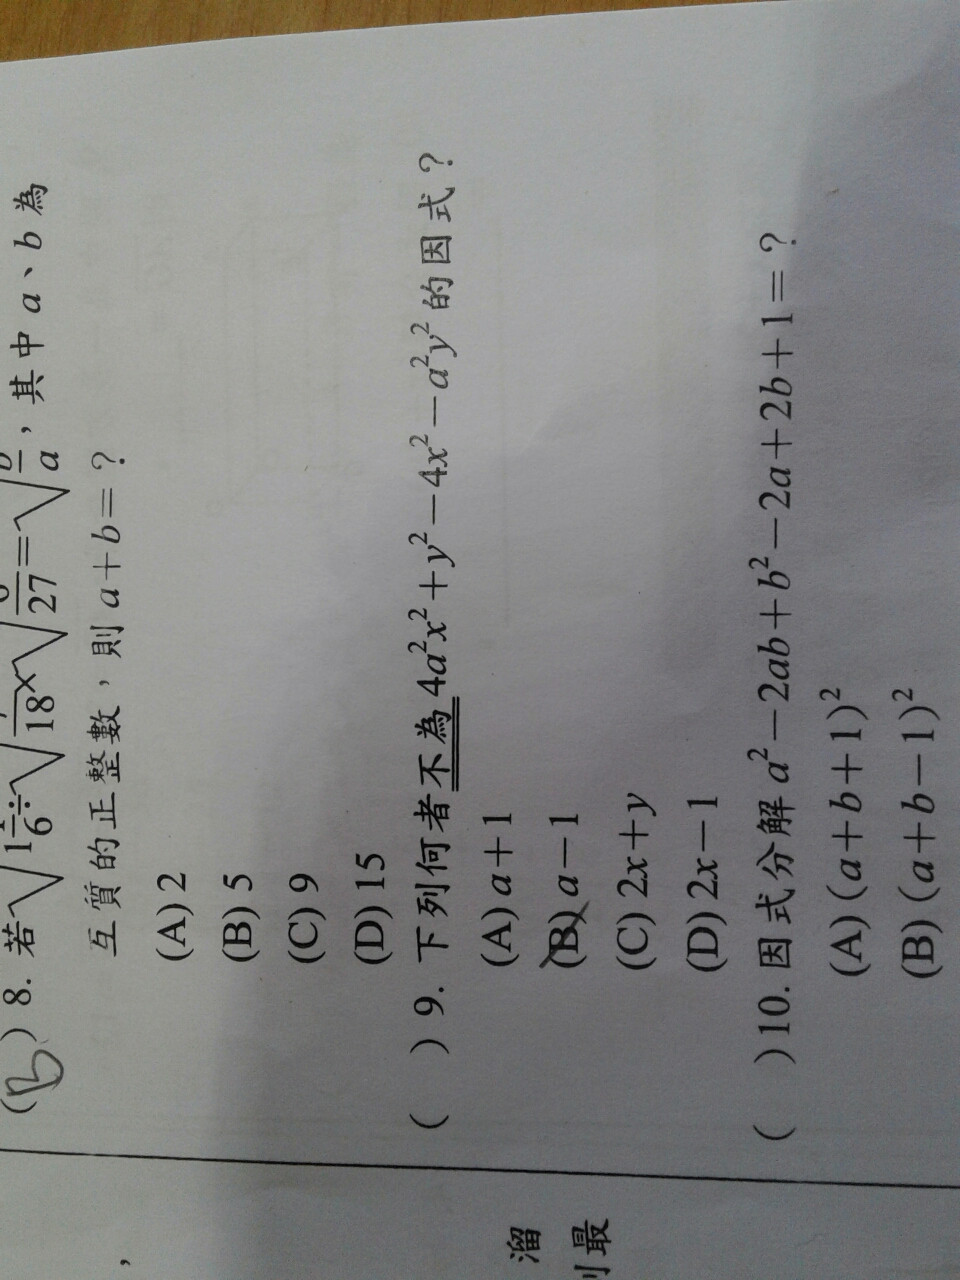 (B) 8. 若√1 1/6 ÷ √ /18 × √ /27 = √ b/a，其中 a、b 為
互質的正整數，則 a+b=？
(A) 2
(B) 5
(C) 9
(D) 15
( ) 9. 下列何者不為 4a²x²+y²−4x²−a²y² 的因式？
(A) a+1
(B) a−1
(C) 2x+y
(D) 2x−1
( ) 10. 因式分解 a²−2ab+b²−2a+2b+1=？
(A) (a+b+1)²
(B) (a+b−1)²
，
溜
最